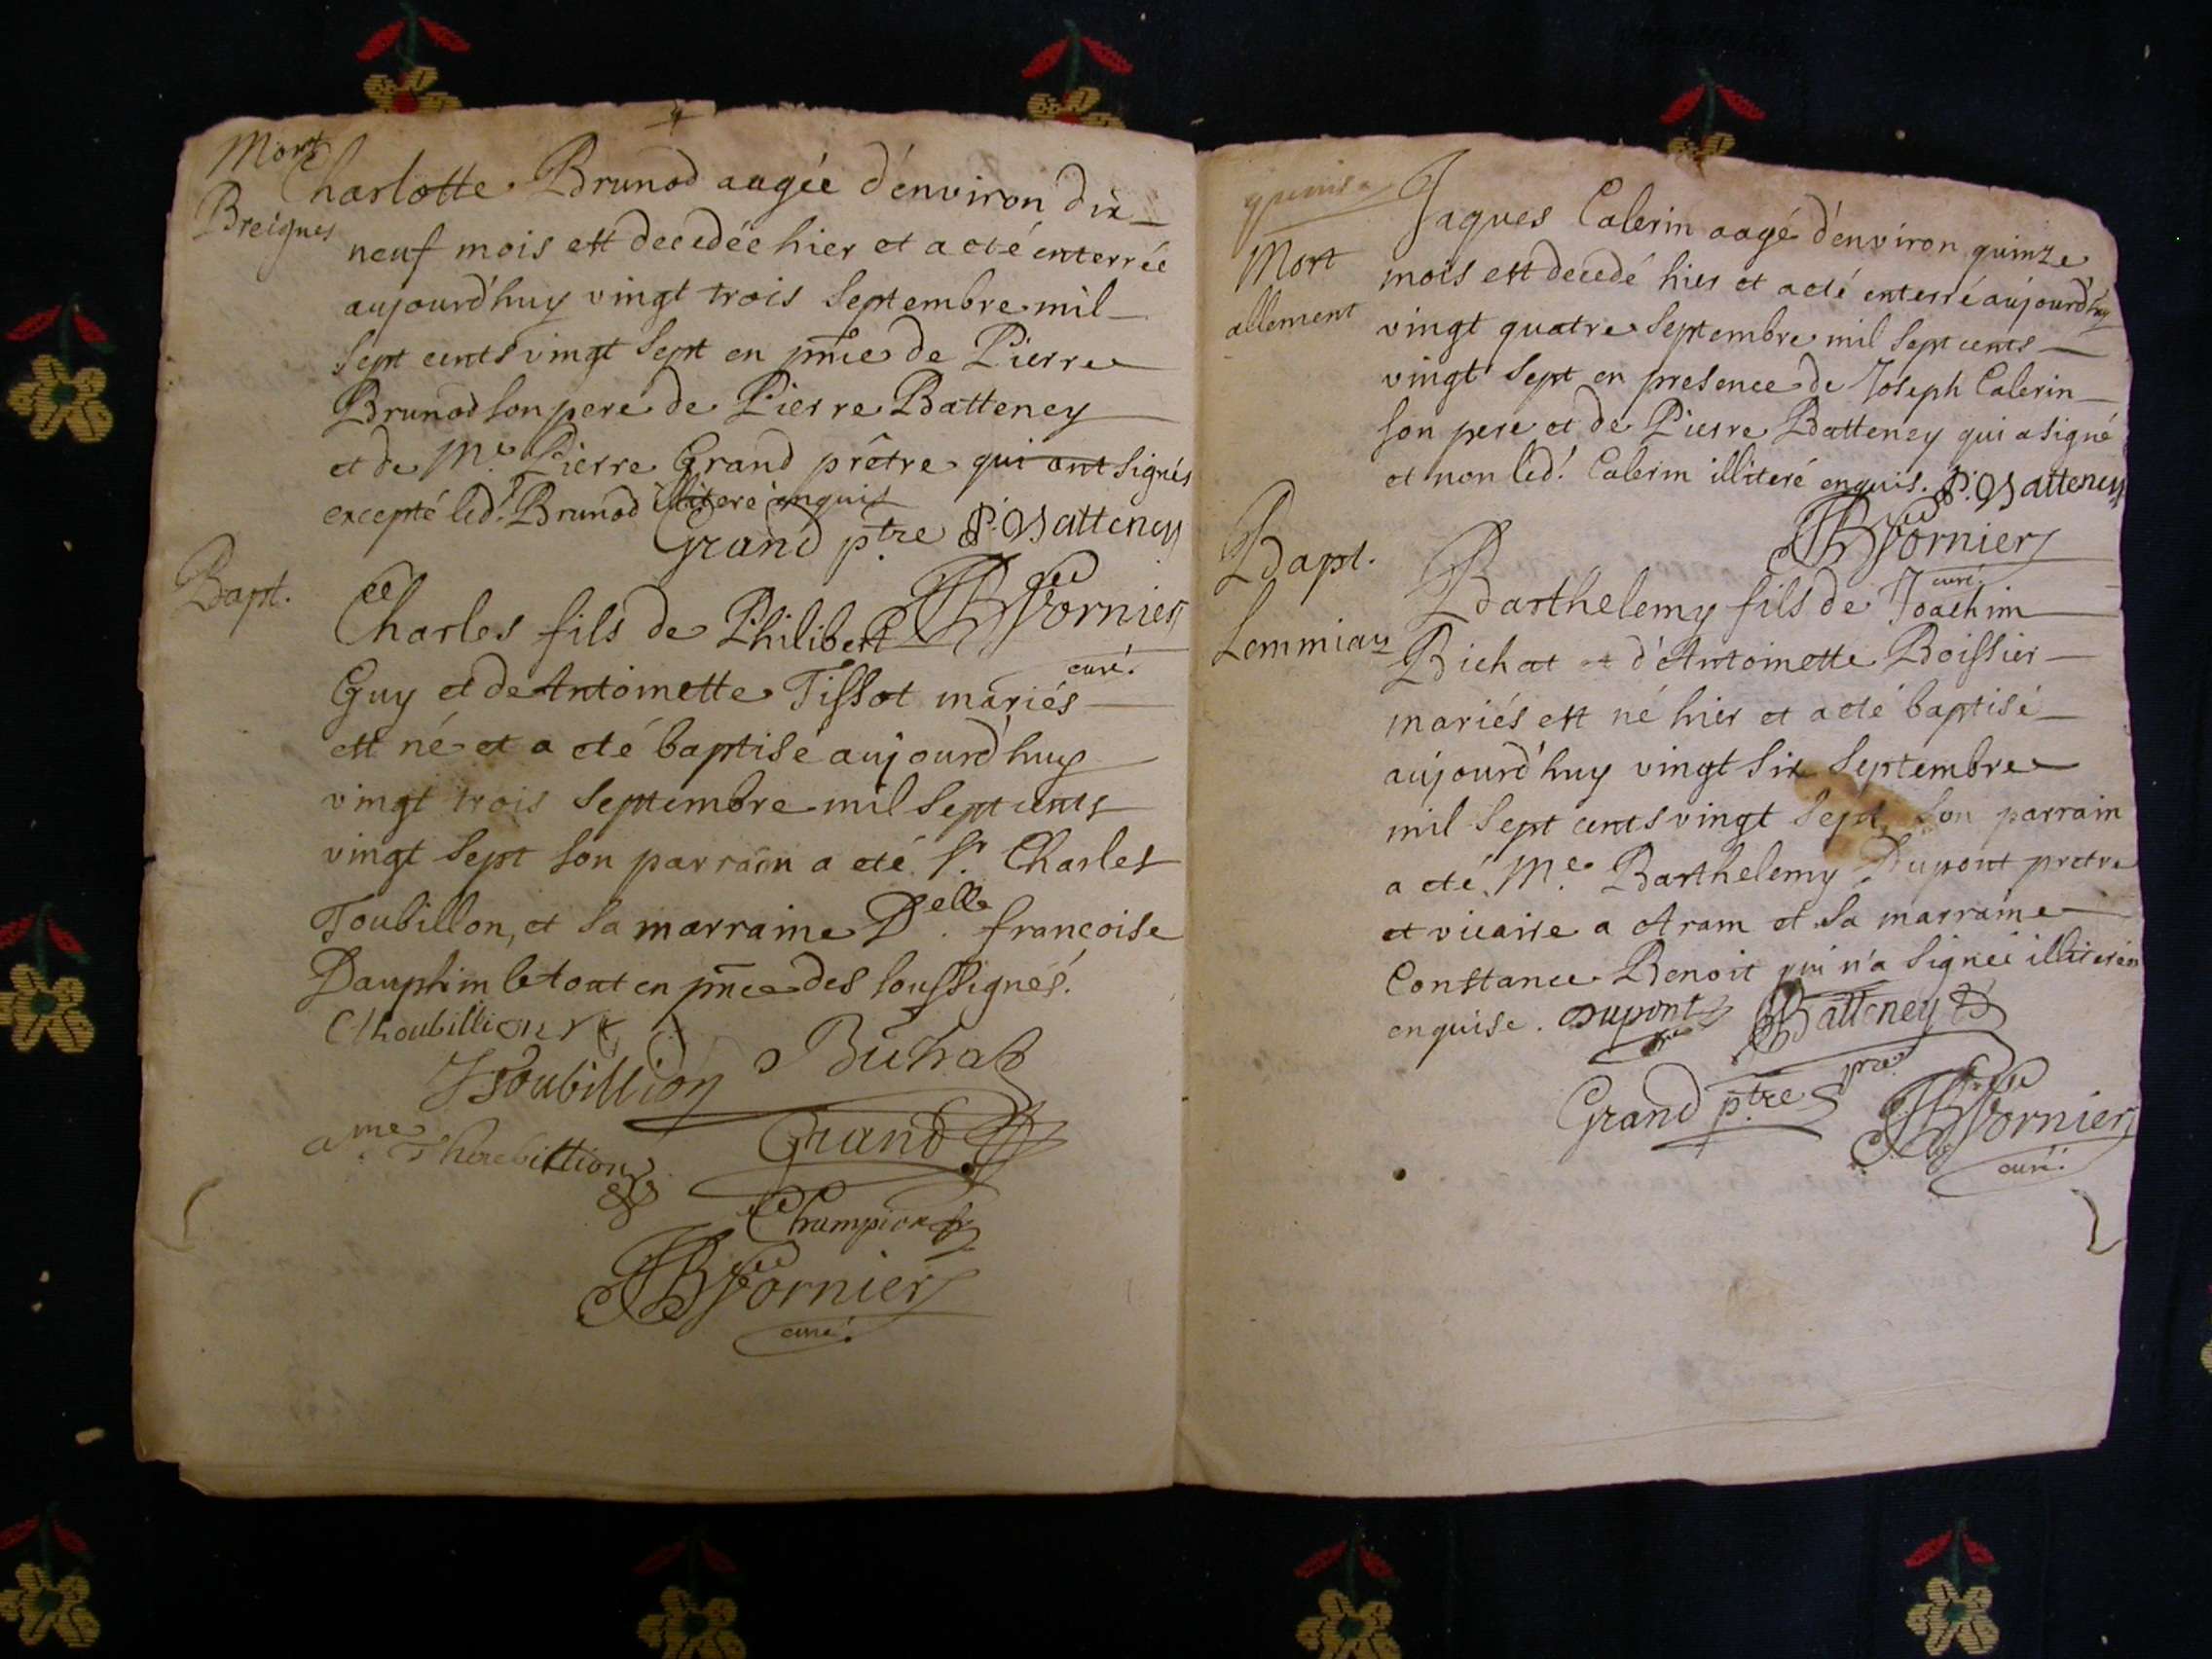 Mort
Breignes
Charlotte Brunod aagée d'environ dix
neuf mois est decedée hier et a eté enterrée
aujourd'huy vingt trois Septembre mil
Sept cents vingt Sept en pnce de Pierre
Brunod son pere de Pierre Batteney
et de Me. Pierre Grand prêtre qui ont signés
excepté led.t Brunod illiteré enquis
Grand ptre P. Batteney
JB Fornier
curé.
Bapt.
Charles fils de Philibert
Guy et de Antoinette Tissot mariés
est né et a eté baptisé aujourd'huy
vingt trois Septembre mil Sept cents
vingt Sept son parrain a eté Sr. Charles
Toubillon, et sa marraine Delle. francoise
Dauphin le tout en pnce des soussignés.
Choubillion
Toubillion
Buhat
Grand
Champion
JB Fornier
curé.
Mort
allement
Jaques Calerin aagé d'environ quinze
mois est decedé hier et a eté enterré aujourd'huy
vingt quatre Septembre mil Sept cents
vingt Sept en presence de Joseph Calerin
son pere et de Pierre Batteney qui a signé
et non led.t Calerin illiteré enquis. P. Batteney
JB Fornier
curé.
Bapt.
Lemmiaz
Barthelemy fils de Joachim
Bichat et d'Antoinette Boissier
mariés est né hier et a eté baptisé
aujourd'huy vingt Six Septembre
mil Sept cents vingt Sept, son parrain
a eté Me. Barthelemy Dupont pretre
et vicaire a Aram et sa marraine
Constance Benoit qui n'a signée illiterée
enquise. Dupont Batteney
Grand ptre
JB Fornier
curé.